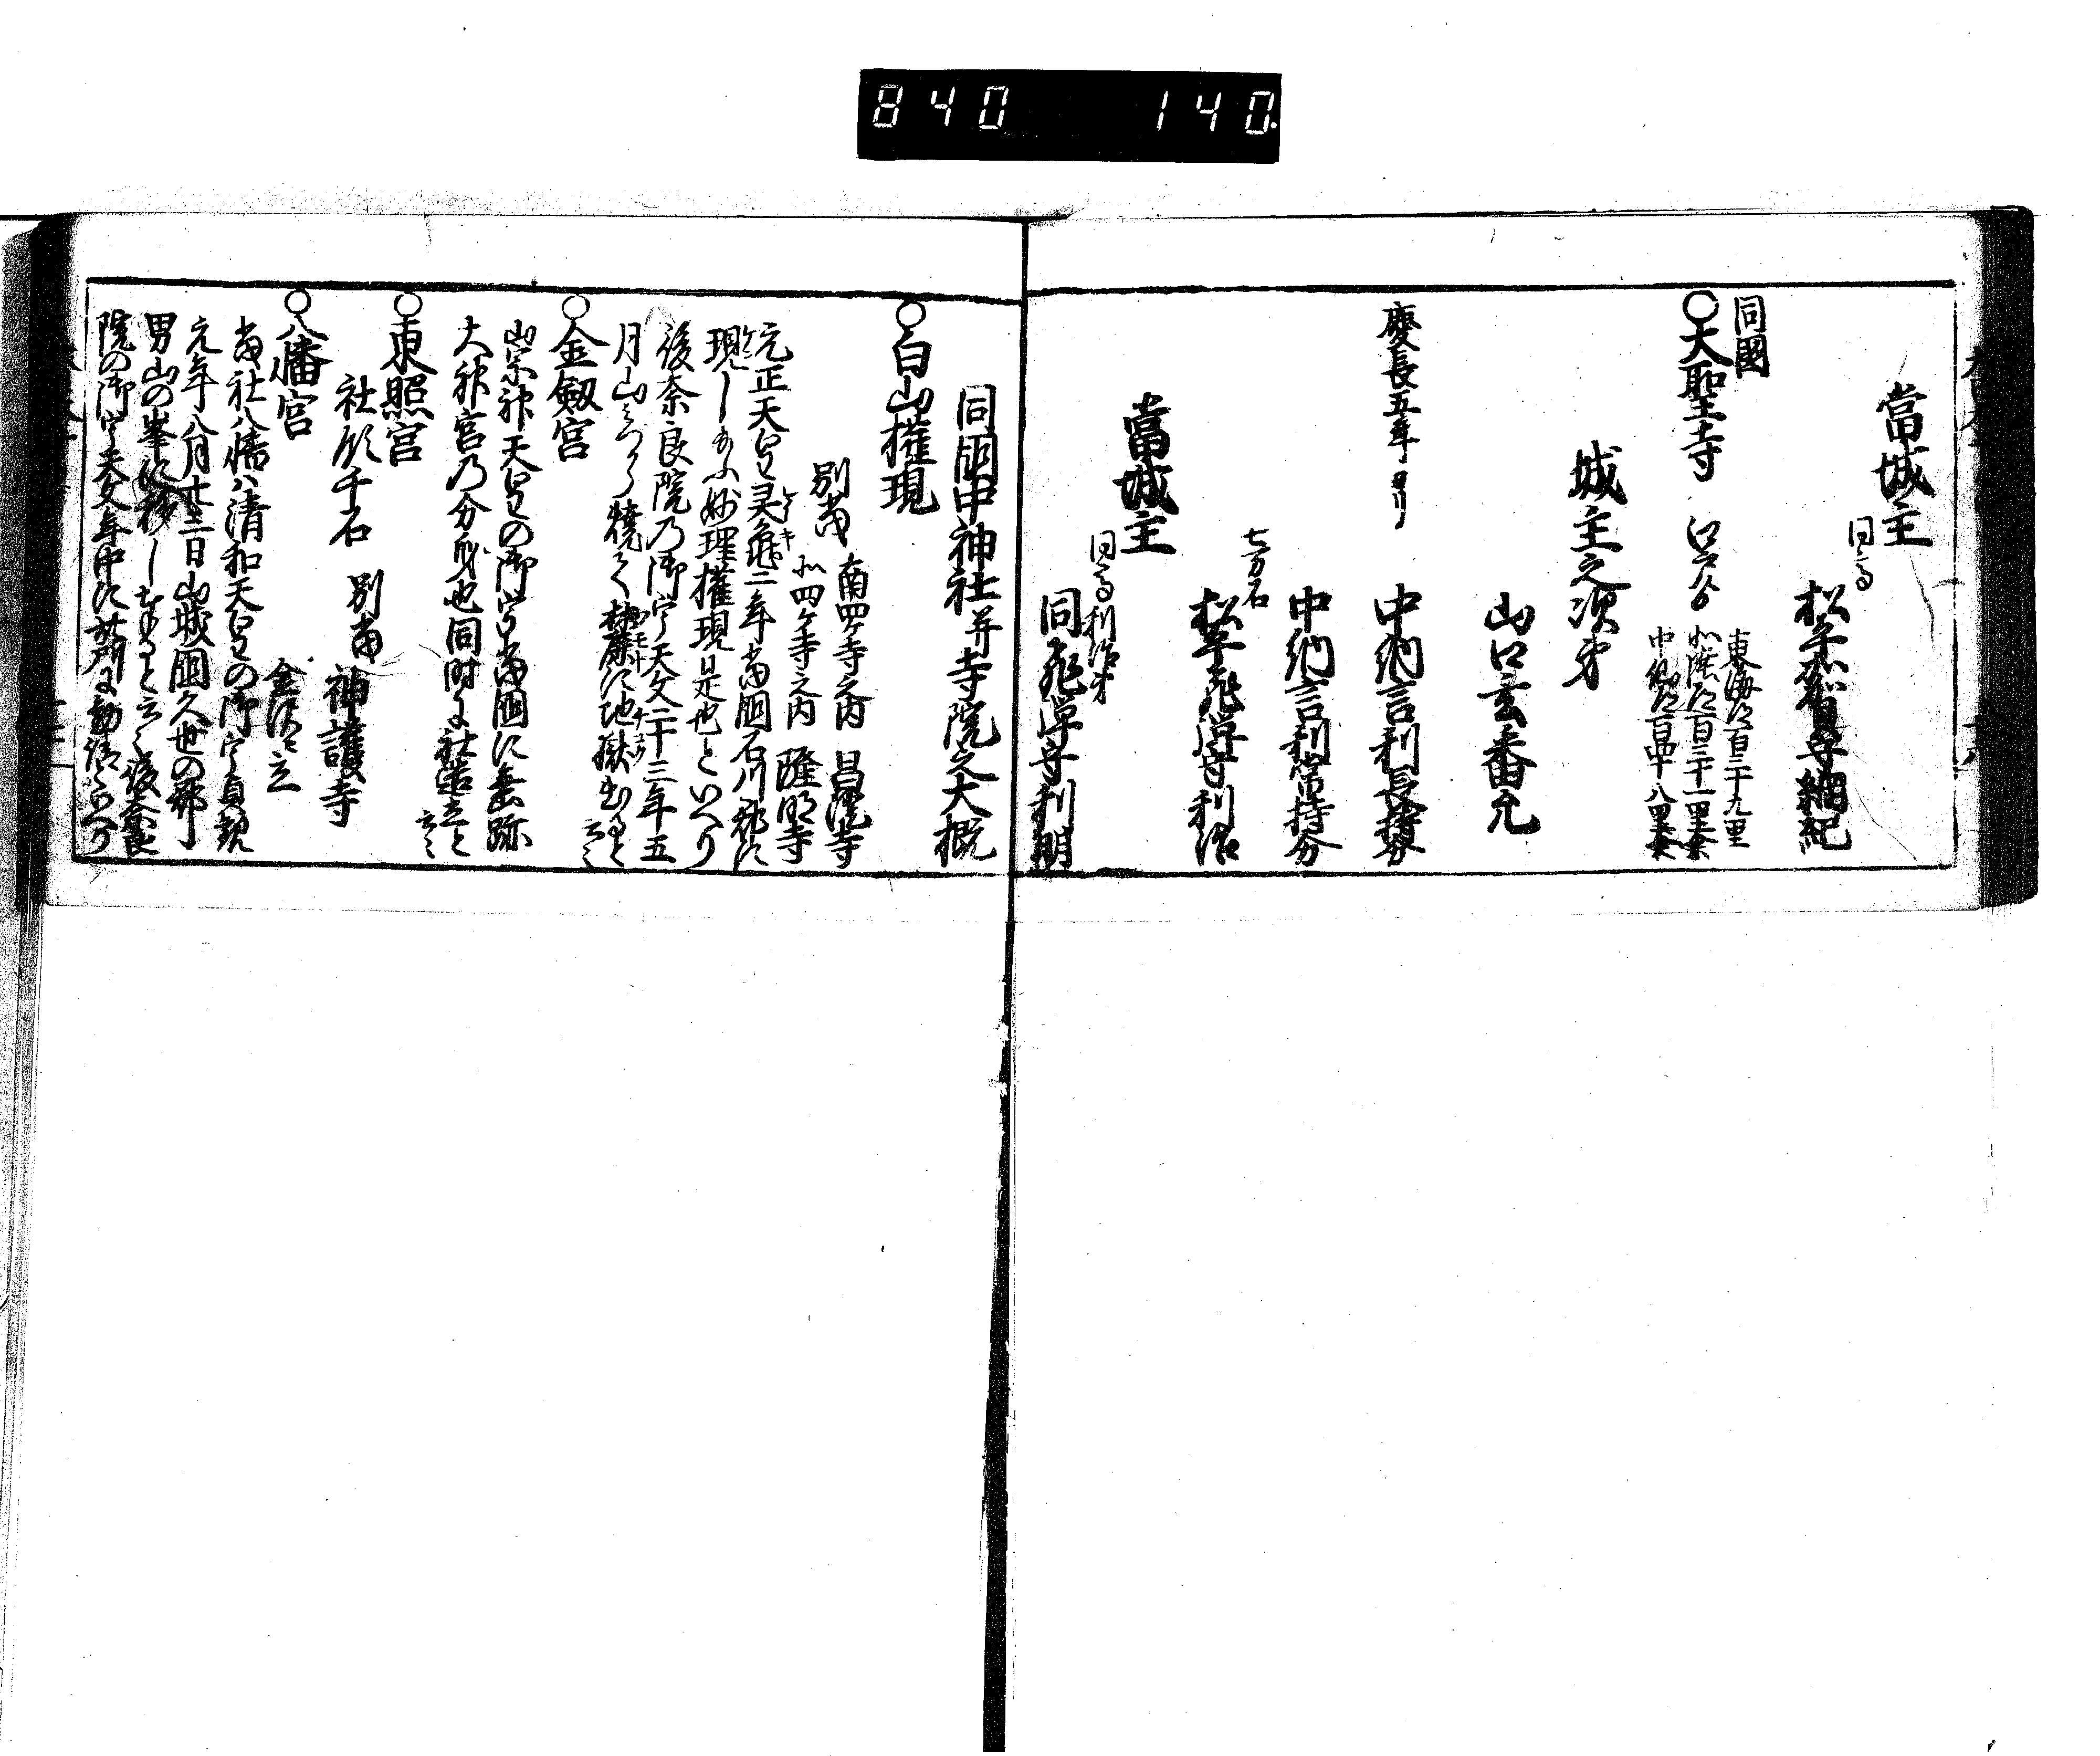 840 140
當城主
松平加賀守綱紀
同國
○大聖寺
東海道百三十九里
北陸道百三十一里余
中仙道百四十八里余
城主之次第
山口玄番允
慶長五年ヨリ
中納言利長持分
中納言利常持分
七万石
松平飛騨守利治
當城主
利治弟
同飛騨守利明
同國中神社并寺院之大概
○白山権現
別當
南四ヶ寺之内
北四ヶ寺之内
元正天皇霊亀二年當國石川郡に
現し給ふ妙理権現是也といへり
後奈良院乃御宇天文二十三年五
月山
○金劔宮
崇神天皇の御宇當國に垂跡
大神宮乃分身也同時に社造立と
云々
○東照宮
社領千石 別當 神護寺
○八幡宮
金沢ニ立
當社八幡ハ清和天皇の御宇貞観
元年八月廿三日山城國久世の郡
男山の峯に移し
後奈良
院の御宇天文年中に此所に勧請といへり